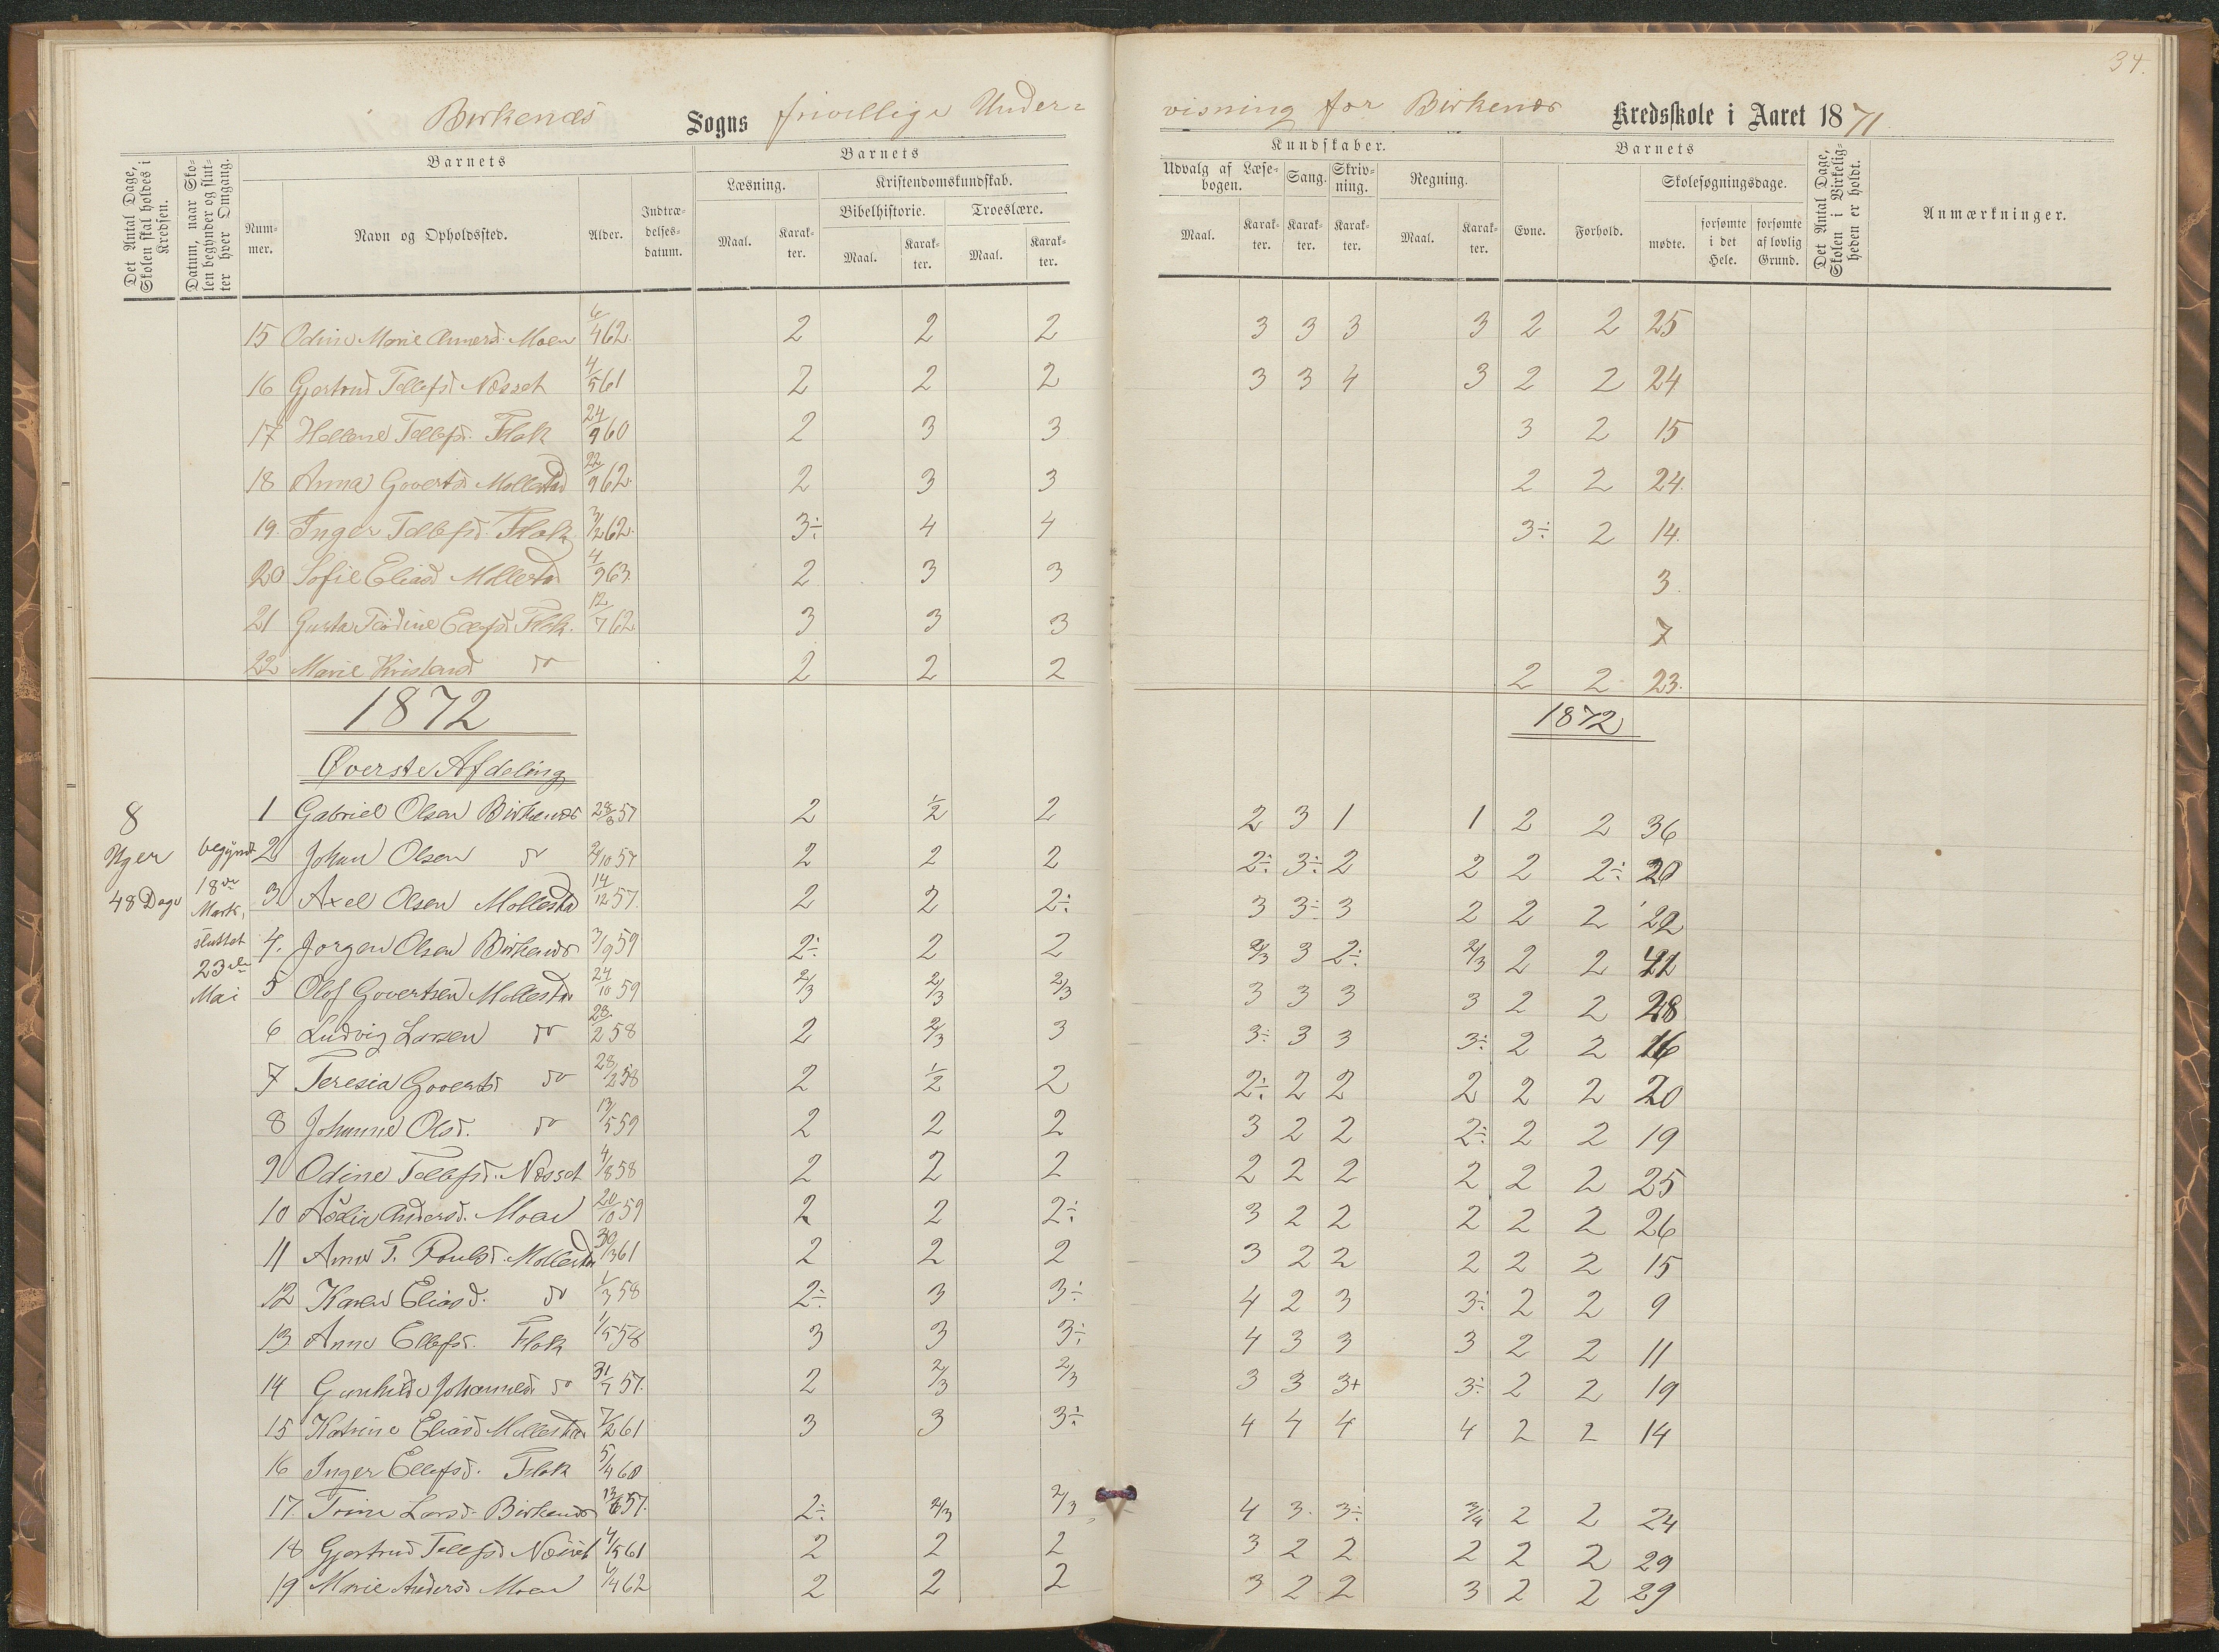 34.
Birkenæs Sogns frivillige Under= visning for Birkenæs Kredsskole i Aaret 1871.
Det Antal Dage, Skolen skal holdes i Kredsen.
Datum, naar Skolen begynder og slutter hver Omgang.
Barnets
Nummer.
Navn og Opholdssted.
Alder.
Indtrædelsesdatum.
Barnets
Læsning.
Maal.
Karakter.
Kristendomskundskab.
Bibelhistorie.
Maal.
Karakter.
Troeslære.
Maal.
Karakter.
Kundskaber.
Udvalg af Læsebogen.
Maal.
Karakter.
Sang.
Karakter.
Skrivning.
Karakter.
Regning.
Maal.
Karakter.
Barnets
Evne.
Forhold.
Skolesøgningsdage.
mødte.
forsømte i det Hele.
forsømte af lovlig Grund.
Det Antal Dage, Skolen i Virkeligheden er holdt.
Anmærkninger.
15 Odine Marie Anersd. Moen 6/4 62. 2 2 2 3 3 3 3 2 2 25
16 Gjertrud Tellefsd. Næsset 4/5 61 2 2 2 3 3 4 3 2 2 24
17 Hellene Tellefsd. Flak 24/9 60 2 3 3 3 2 15
18 Anna Govertsd Mollestad 22/9 62. 2 3 3 2 2 24.
19. Inger Tellefsd. Flak 3/2 62. 3÷ 4 4 3÷ 2 14.
20 Sofie Eliasd Mollestad 4/9 63. 2 3 3 3.
21 Gusta Ellefsd. Flak. 12/7 62. 3 3 3 7
22 Marie Kristensd do 2 2 2 2 2 23.
1872 1872
Øverste Afdeling
8 Uger 48 Dage
begyndt 18de Marts, sluttet 23de Mai
1 Gabriel Olsen Birkenæs 28/8 57 2 1/2 2 2 3 1 1 2 2 36
2 Johan Olsen do 2/10 57 2 2 2 2÷ 3÷ 2 2 2 2÷ 20
3 Axel Olsen Mollestad 14/12 57. 2 2 2÷ 3 3÷ 3 2 2 2 22
4. Jørgen Olsen Birkenæs 3/9 59 2÷ 2 2 2/3 3 2÷ 2/3 2 2 42
5 Olof Govertsen Mollestad 24/10 59 2/3 2/3 2/3 3 3 3 3 2 2 28
6 Ludvig Larsen do 28/2 58 2 2/3 3 3÷ 3 3 3÷ 2 2 16
7 Teresia Govertsd do 28/2 58 2 1/2 2 2÷ 2 2 2 2 2 20
8 Johanne Olsd. do 13/5 59 2 2 2 3 2 2 2÷ 2 2 19
9 Odine Tellefsd. Næsset 4/8 58 2 2 2 2 2 2 2 2 2 25
10 Andersd. Moen 20/10 59 2 2 2÷ 3 2 2 2 2 2 26
11 Anne T. Poulsd. Mollestad 30/3 61 2 2 2 3 2 2 2 2 2 15
12 Karen Eliasd. do 1/3 58 2÷ 3 3÷ 4 2 3 3÷ 2 2 9
13. Anne Ellefsd. Flak 1/5 58 3 3 3÷ 4 3 3 3 2 2 11
14 Gunhilde Johannesd. do 31/7 57. 2 2/3 2/3 3 3 3+ 3÷ 2 2 19
15 Katrine Eliasd Mollestad 7/2 61 3 3 3÷ 4 4 4 4 2 2 14
16 Inger Ellefsd. Flak 5/4 60
17. Trine Larsd. Birkenæs 13/6 57. 2÷ 2/3 2/3 4 3. 3÷ 3/4 2 2 24
18 Gjertrud Tellefsd Næsset 4/5 61 2 2 2 3 2 2 2 2 2 29
19 Marie Andersd Moen 6/4 62 2 2 2 3 2 2 3 2 2 29